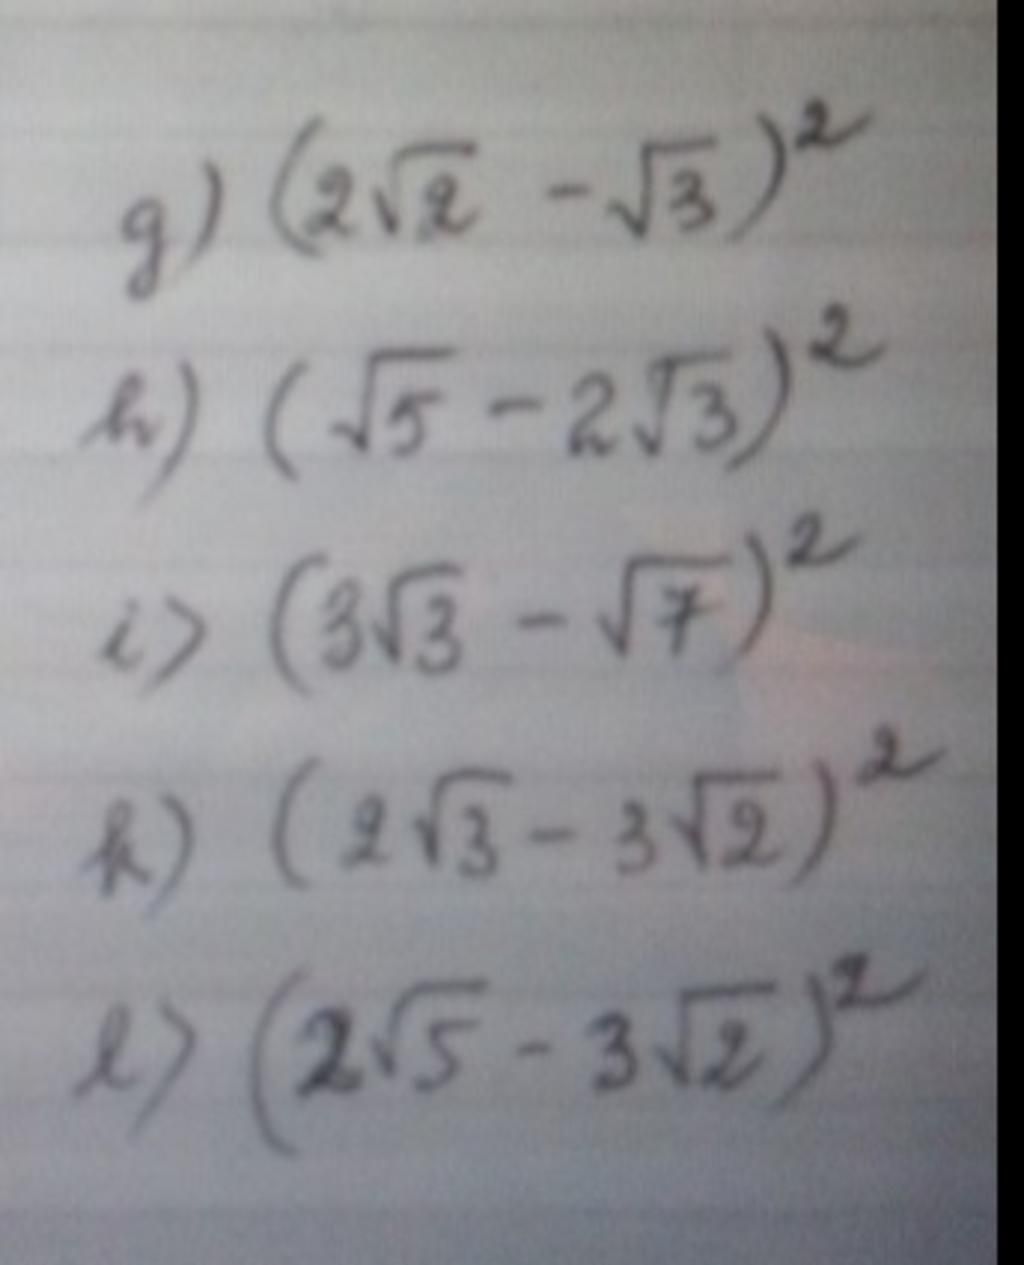 g) (2√2 - √3)²
h) (√5 - 2√3)²
i) (3√3 - √7)²
k) (2√3 - 3√2)²
l) (2√5 - 3√2)²